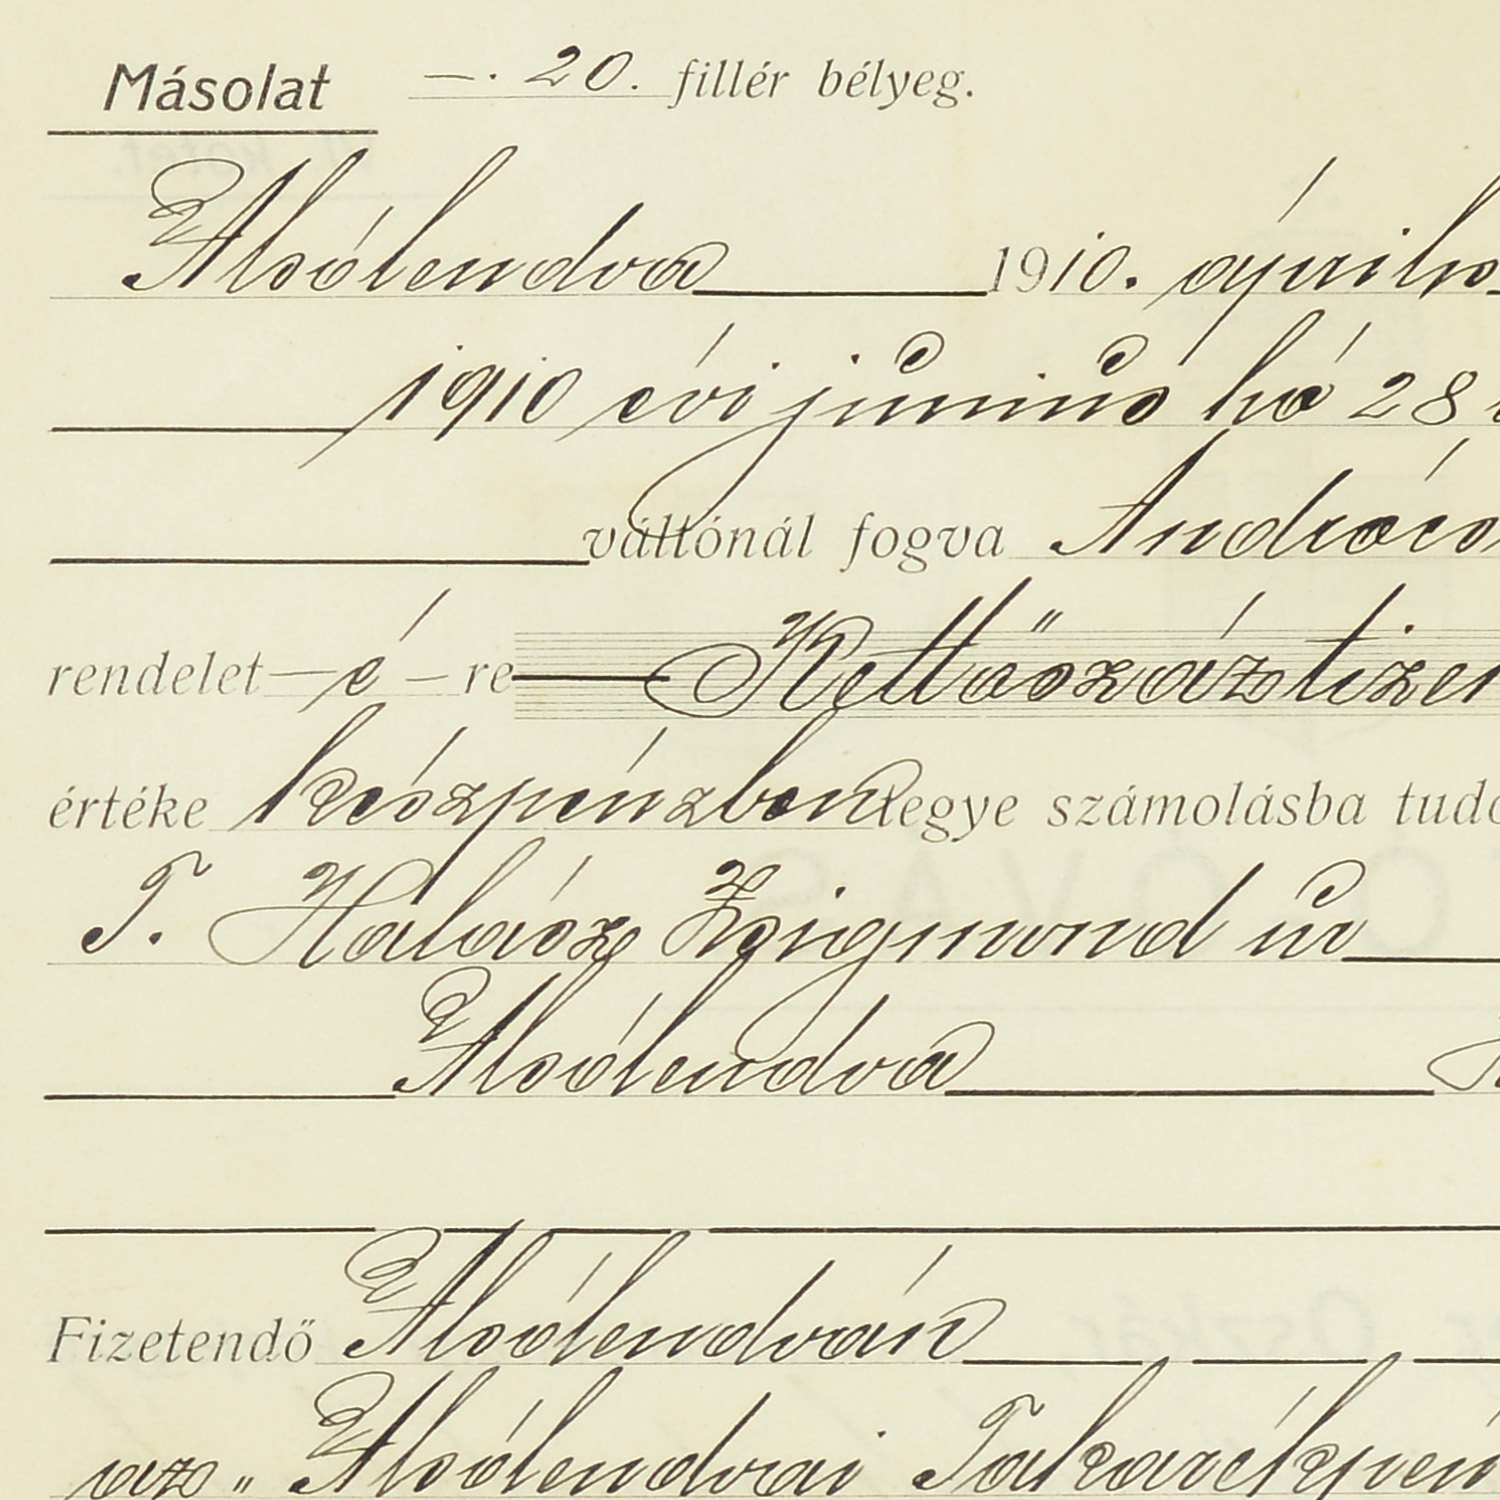 Másolat —. 20. fillér bélyeg.
Alsólendva 1910. április
1910 évi június hó 28
váltónál fogva
rendelet —é— re Kettőszáztizen
értéke készpénzben s tegye számolásba
T. Halász Zsigmond úr
Alsólendva
Fizetendő Alsólendván
az „Alsólendvai Takarékpén